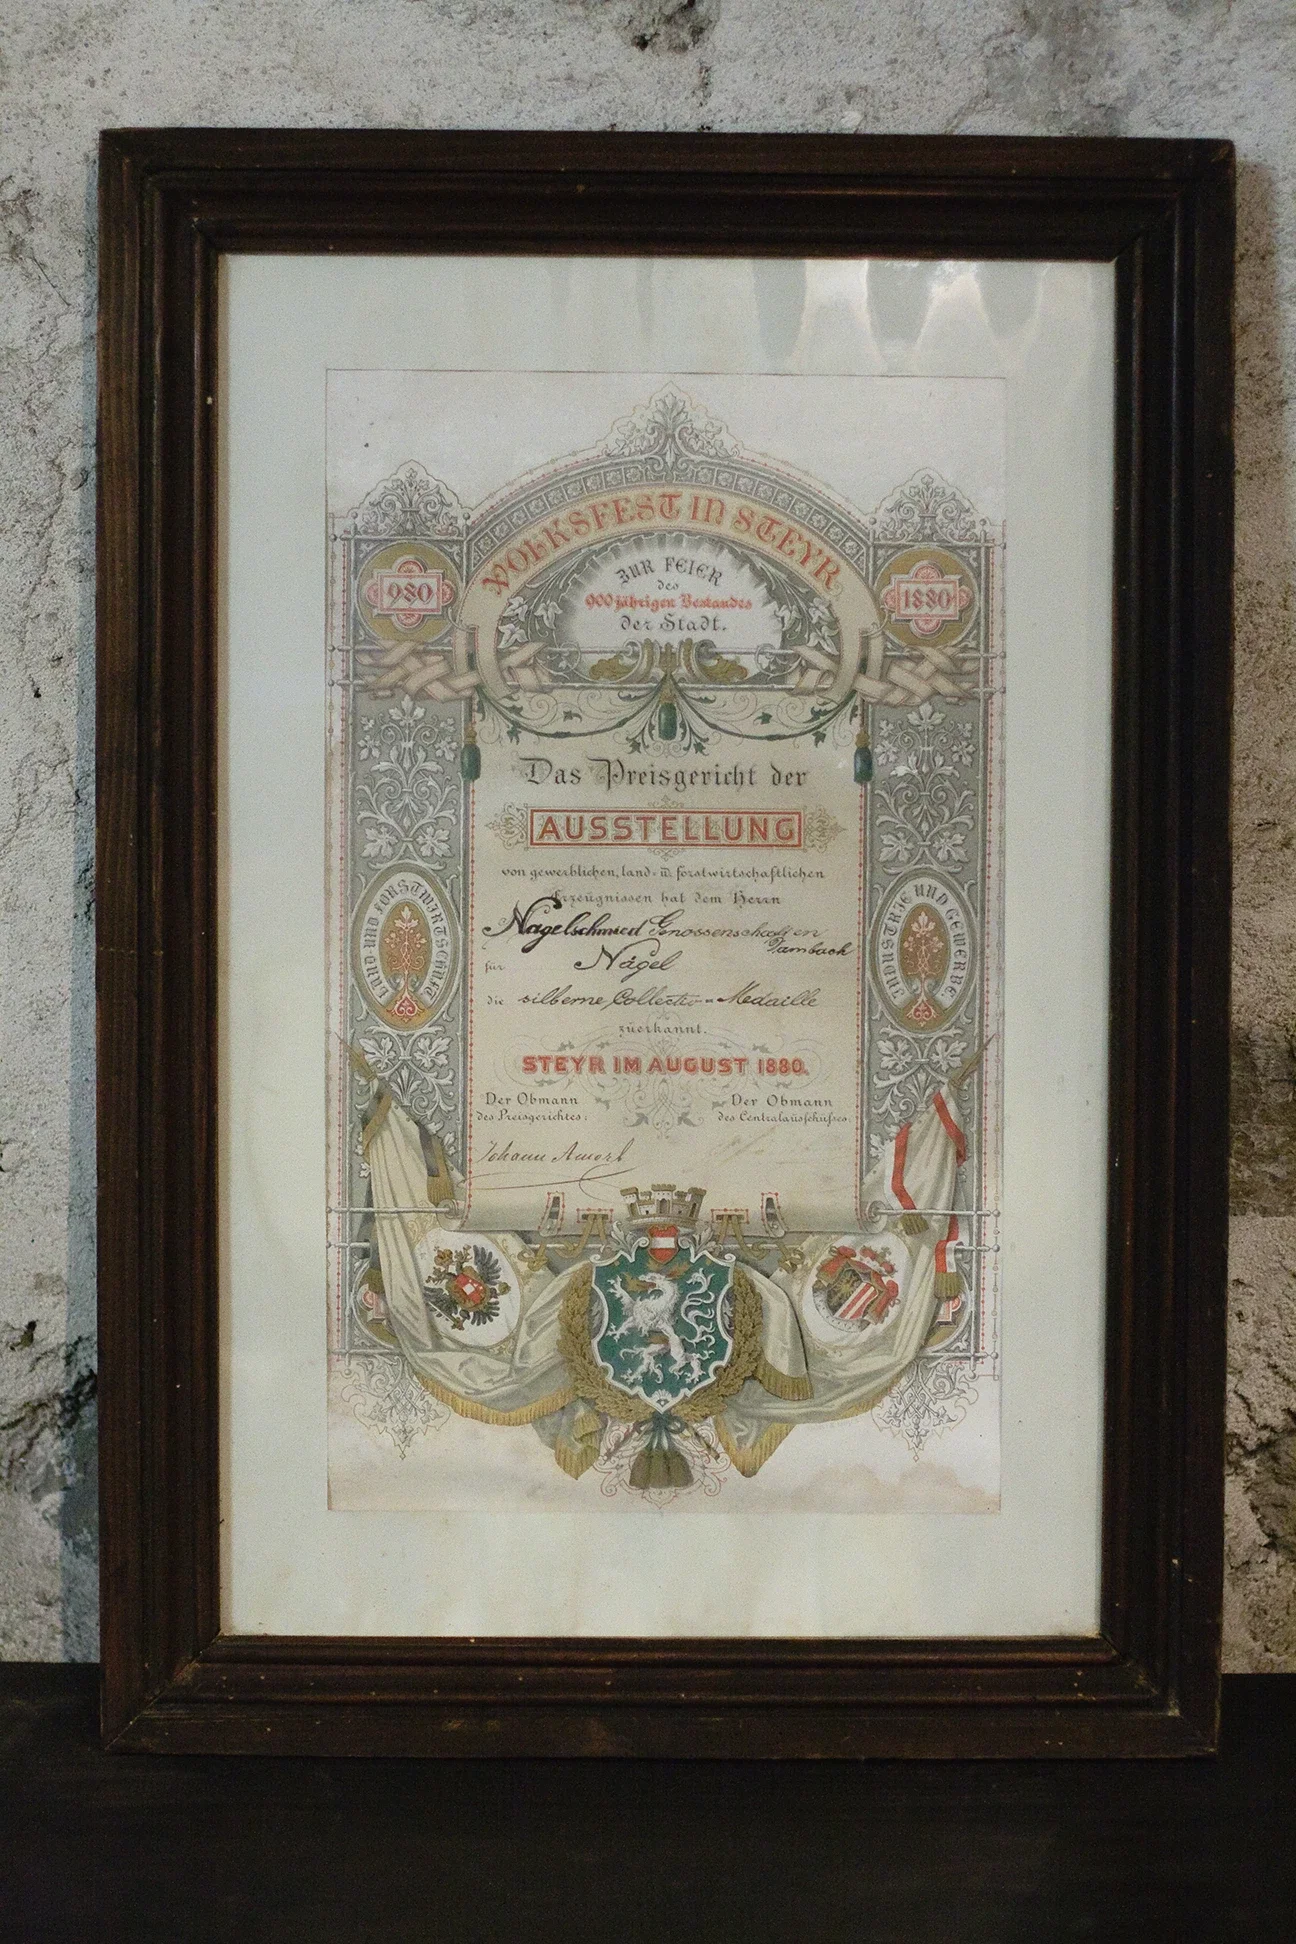 VOLKSFEST IN STEYR
980
ZUR FEIER
1880
des
900 jährigen Bestandes
der Stadt.
Das Preisgericht der
AUSSTELLUNG
von gewerblichen, land- u. forstwirtschaftlichen
Erzeugnissen hat dem Herrn
LAND UND FORSTWIRTSCHAFT
INDUSTRIE UND GEWERBE.
Nagelschmied Genossenschaft en
Dambach
für Nägel
die silberne Collectiv-Medaille
zuerkannt.
STEYR IM AUGUST 1880.
Der Obmann
des Preisgerichtes:
Der Obmann
des Centralausschußes
Johann